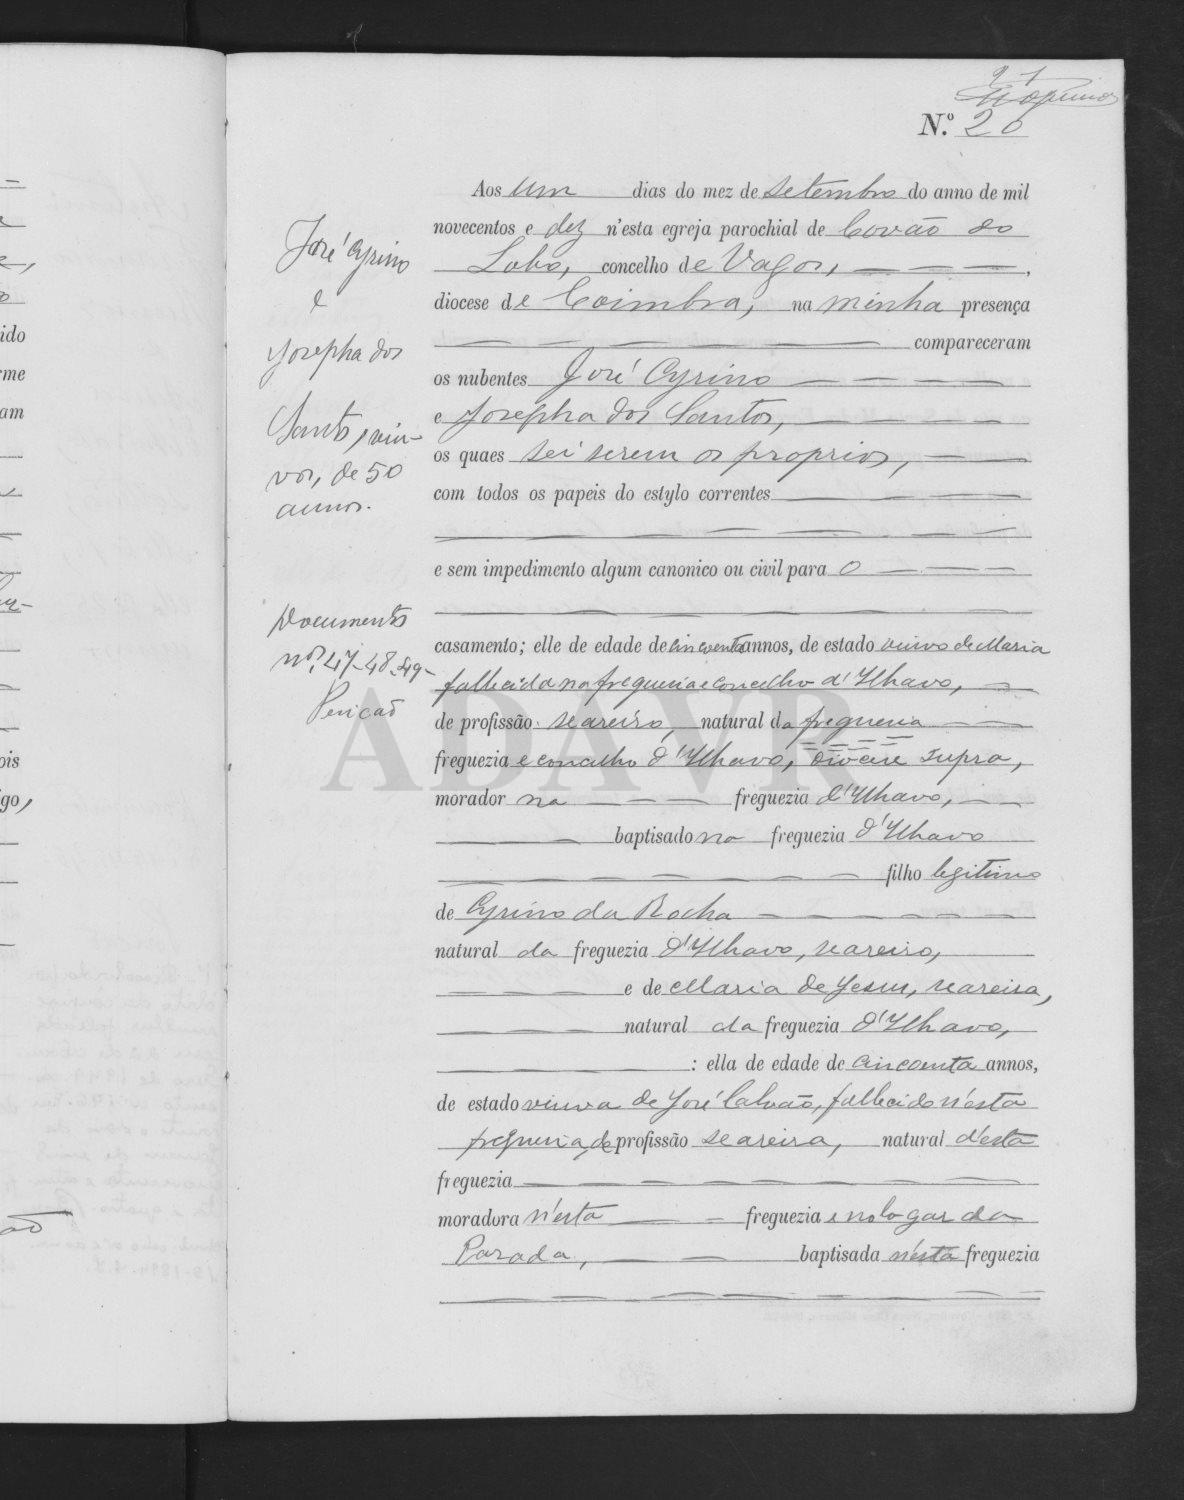 21
Nº 20
José Cyrino
e
Josepha dos
Santos, viu-
vos, de 50
annos.
Documentos
nos. 47-48-49-
Aos um dias do mez de setembro do anno de mil
novecentos e dez n'esta egreja parochial de Covão do
Lobo, concelho de Vagos,
diocese de Coimbra, na minha presença
compareceram
os nubentes José Cyrino
e Josepha dos Santos,
os quaes sei serem os proprios,
com todos os papeis do estylo correntes
e sem impedimento algum canonico ou civil para o
casamento; elle de edade de cincoenta annos, de estado viuvo de Maria
fallecida na freguezia e concelho d'Ilhavo,
de profissão seareiro, natural da freguezia
freguezia e concelho d'Ilhavo, diocese supra,
morador na freguezia d'Ilhavo,
baptisado na freguezia d'Ilhavo
filho legitimo
de Cyrino da Rocha
natural da freguezia d'Ilhavo, seareiro,
e de Maria de Jesus, seareira,
natural da freguezia d'Ilhavo,
: ella de edade de cincoenta annos,
de estado viuva de José Calvão, fallecido n'esta
freguezia, de profissão seareira, natural d'esta
freguezia
moradora n'esta freguezia e no logar da
Parada, baptisada n'esta freguezia
ADAVR
ido
rme
am
ois
igo,